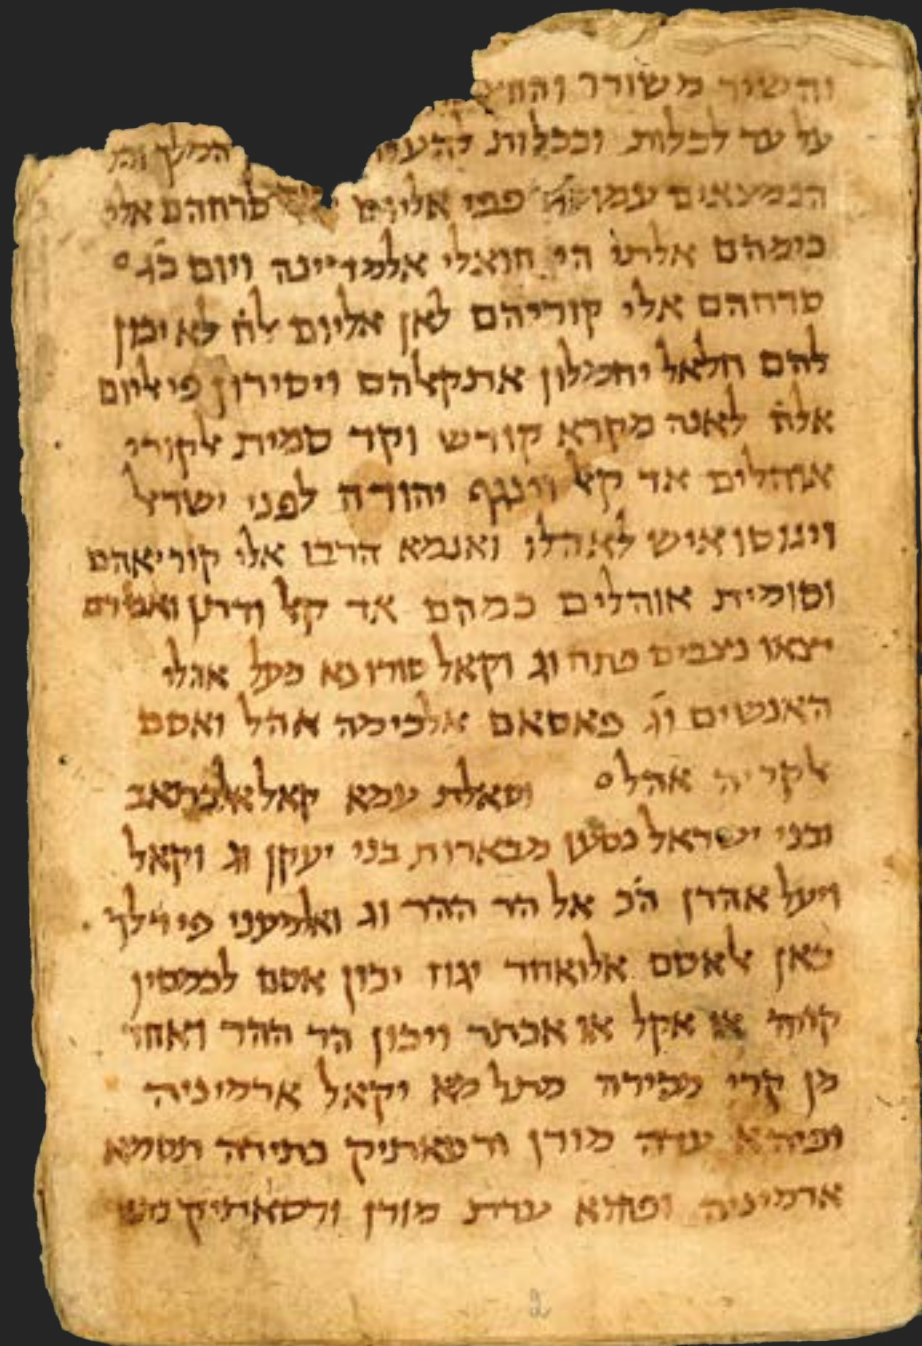 והשיר משורר
על עד לכלות וככלות להעלו המלך וכל
הנמצאים עמו פפי אליום סרחהם אלי
כימהם אלתי הי חואלי אלמדינה ויום כ̇ג̇
סרחהם אלי קוריהם לאן אליום אלח̇ לא ימן
להם חלאל יחמלון אתקאלהם ויסירון פי אליום
אלח̇ לאנה מקרא קודש וקד סמית אלקורי
אוהלים אד קאל וינגף יהודה לפני ישראל
וינוסו איש לאהלו ואנמא הרבו אלי קוריאהם
וסומית אוהלים כמהם אד קאל ודתן ואבירם
יצאו נצבים פתח וג̇ וקאל סורו נא מעל אהלי
האנשים וג̇ פאסאם אלכימה אהל ואסם
אלקריה אהל וסאלת עמא קאל אלכתאב
ובני ישראל נסעו מבארות בני יעקן וג̇ וקאל
ויעל אהרן הכ̇ אל הר ההר וג̇ ואלמעני פי דלך
כאן אלאסם אלואחד יגוז יכון אסם לכמסין
קריה או אקל או אכתר ויכון הר ההר ואחד
מן קרי מסירה מתל מא יקאל ארמיניה
ופיהא עדה מודן ורסאתיק כתירה תסמא
ארמיניה ופיהא עדת מודן ורסאתיק